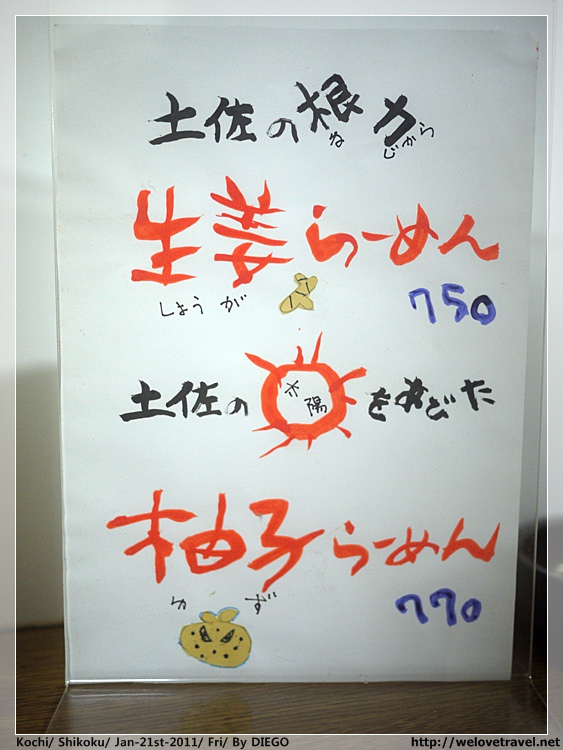 土佐の根力
ねじから
生姜らーめん
しょうが
750
土佐の太陽をあびた
柚子らーめん
ゆず
770
Kochi/ Shikoku/ Jan-21st-2011/ Fri/ By DIEGO
http://welovetravel.net